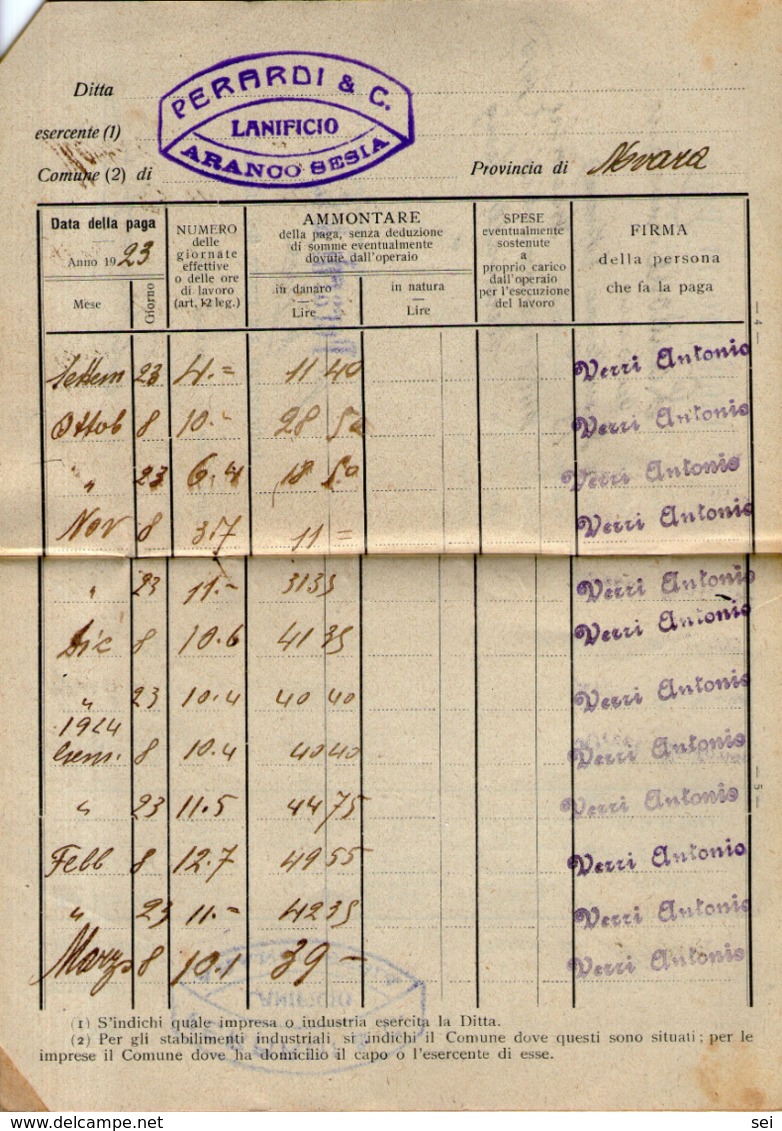 Ditta
PERARDI & C.
LANIFICIO
ARANCO SESIA
esercente (1)
Comune (2) di
Provincia di Novara
Data della paga
Anno 1923
Mese
Giorno
NUMERO
delle
giornate
effettive
o delle ore
di lavoro
(art. 12 leg.)
AMMONTARE
della paga, senza deduzione
di somme eventualmente
dovute dall'operaio
in danaro
Lire
in natura
Lire
SPESE
eventualmente
sostenute
a
proprio carico
dall'operaio
per l'esecuzione
del lavoro
FIRMA
della persona
che fa la paga
Settem 23 4.= 11 40 Verri Antonio
Ottob 8 10.- 28 50 Verri Antonio
" 23 6.4 18 50 Verri Antonio
Nov 8 3.7 11 = Verri Antonio
" 23 11.- 31 35 Verri Antonio
Dic 8 10.6 41 35 Verri Antonio
" 23 10.4 40 40 Verri Antonio
1924
Genn. 8 10.4 40 40 Verri Antonio
" 23 11.5 44 75 Verri Antonio
Febb 8 12.7 49 55 Verri Antonio
" 23 11.= 42 35 Verri Antonio
Marzo 8 10.1 39 - Verri Antonio
— 4 —
— 5 —
(1) S'indichi quale impresa o industria esercita la Ditta.
(2) Per gli stabilimenti industriali si indichi il Comune dove questi sono situati; per le
imprese il Comune dove ha domicilio il capo o l'esercente di esse.
sei